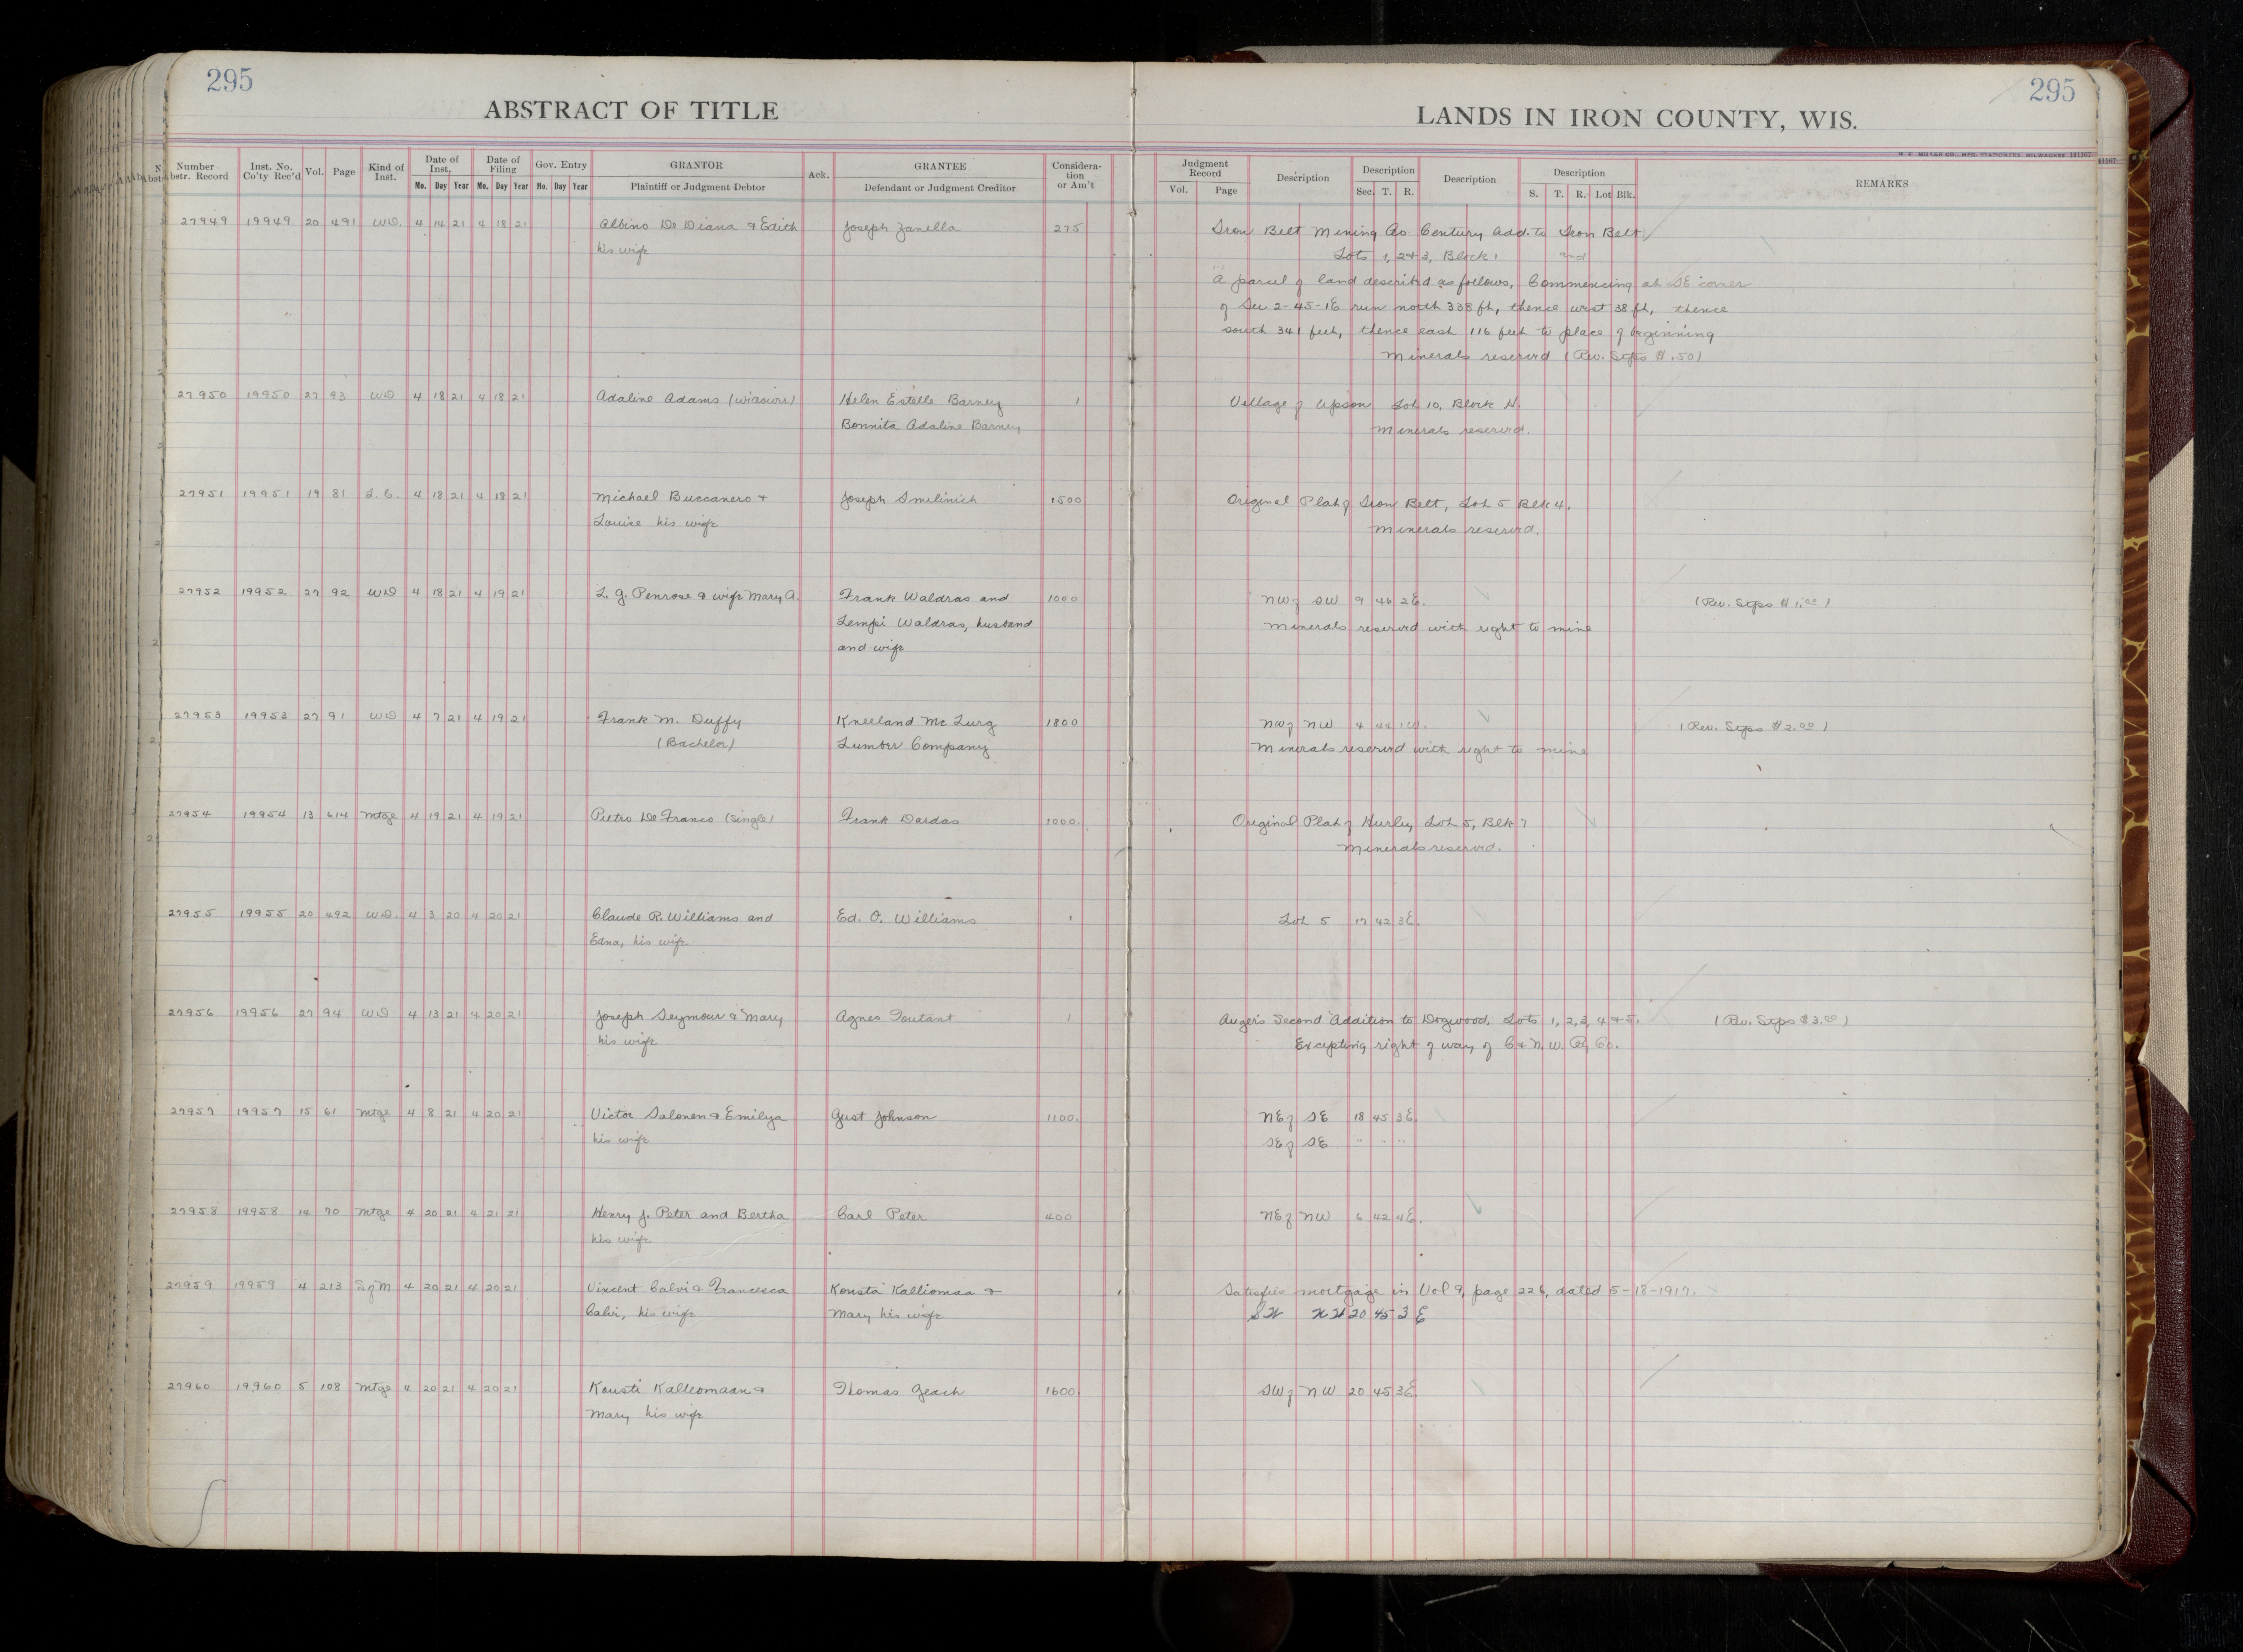 295
295
ABSTRACT OF TITLE
LANDS IN IRON COUNTY, WIS.
Number Abstr. Record Inst. No. Co'ty Rec'd Vol. Page Kind of Inst. Date of Inst. Mo. Day Year Date of Filing Mo. Day Year Gov. Entry Mo. Day Year GRANTOR Plaintiff or Judgment Debtor Ack. GRANTEE Defendant or Judgment Creditor Considera-tion or Am't
Judgment Record Vol. Page Description Description Sec. T. R. Description Description S. T. R. Lot Blk. REMARKS
27949 19949 20 491 W.D. 4 14 21 4 18 21 Albino De Diana & Edith Joseph Zanella 275 Iron Belt Mining Co. Century Add. to Iron Belt
his wife Lots 1, 2 & 3, Block 1 and
A parcel of land described as follows, Commencing at SE corner
of Sec 2-45-1E run north 338 ft, thence west 38 ft, thence
south 341 feet, thence east 116 feet to place of beginning
Minerals reserved (Rev. Stps $.50)
27950 19950 27 93 WD 4 18 21 4 18 21 Adaline Adams (widow) Helen Estelle Barney 1 Village of Upson Lot 10, Block H.
Bonnita Adaline Barney Minerals reserved.
27951 19951 19 81 L.C. 4 18 21 4 18 21 Michael Buccanero & Joseph Smilinich 1500 Original Plat of Iron Belt, Lot 5 Blk 4.
Louise his wife Minerals reserved.
27952 19952 27 92 WD 4 18 21 4 19 21 L. G. Penrose & wife Mary A. Frank Waldras and 1000 NW of SW 9 46 2E. (Rev. Stps $1.00)
Lempi Waldras, husband Minerals reserved with right to mine
and wife
27953 19953 27 91 WD 4 7 21 4 19 21 Frank M. Duffy Kneeland Mc Lurg 1800 NW of NW 4 44 1W. (Rev. Stps $2.00)
(Bachelor) Lumber Company Minerals reserved with right to mine
27954 19954 13 614 Mtge 4 19 21 4 19 21 Pietro De Franco (single) Frank Dardas 1000. Original Plat of Hurley, Lot 5, Blk 7
Minerals reserved.
27955 19955 20 492 W.D. 4 3 20 4 20 21 Claude R. Williams and Ed. O. Williams 1 Lot 5 17 42 3E.
Edna, his wife
27956 19956 27 94 WD 4 13 21 4 20 21 Joseph Seymour & Mary Agnes Toutant 1 Auger's Second Addition to Dogwood, Lots 1, 2, 3, 4 & 5. (Rev. Stps $3.00)
his wife Excepting right of way of C & N. W. Ry Co.
27957 19957 15 61 Mtge 4 8 21 4 20 21 Victor Salonen & Emilya Gust Johnson 1100. NE of SE 18 45 3E.
his wife SE of SE " " "
27958 19958 14 70 Mtge 4 20 21 4 21 21 Henry J. Peter and Bertha Carl Peter 400 NE of NW 6 42 4E.
his wife
27959 19959 4 213 S of M 4 20 21 4 20 21 Vincent Calvi & Francesca Kousta Kalliomaa & Satisfies mortgage in Vol 9, page 226, dated 5-18-1917.
Calvi, his wife Mary his wife SW NW 20 45 3 E
27960 19960 5 108 Mtge 4 20 21 4 20 21 Kousti Kalleomaan & Thomas Geach 1600. SW of NW 20 45 3E
Mary his wife